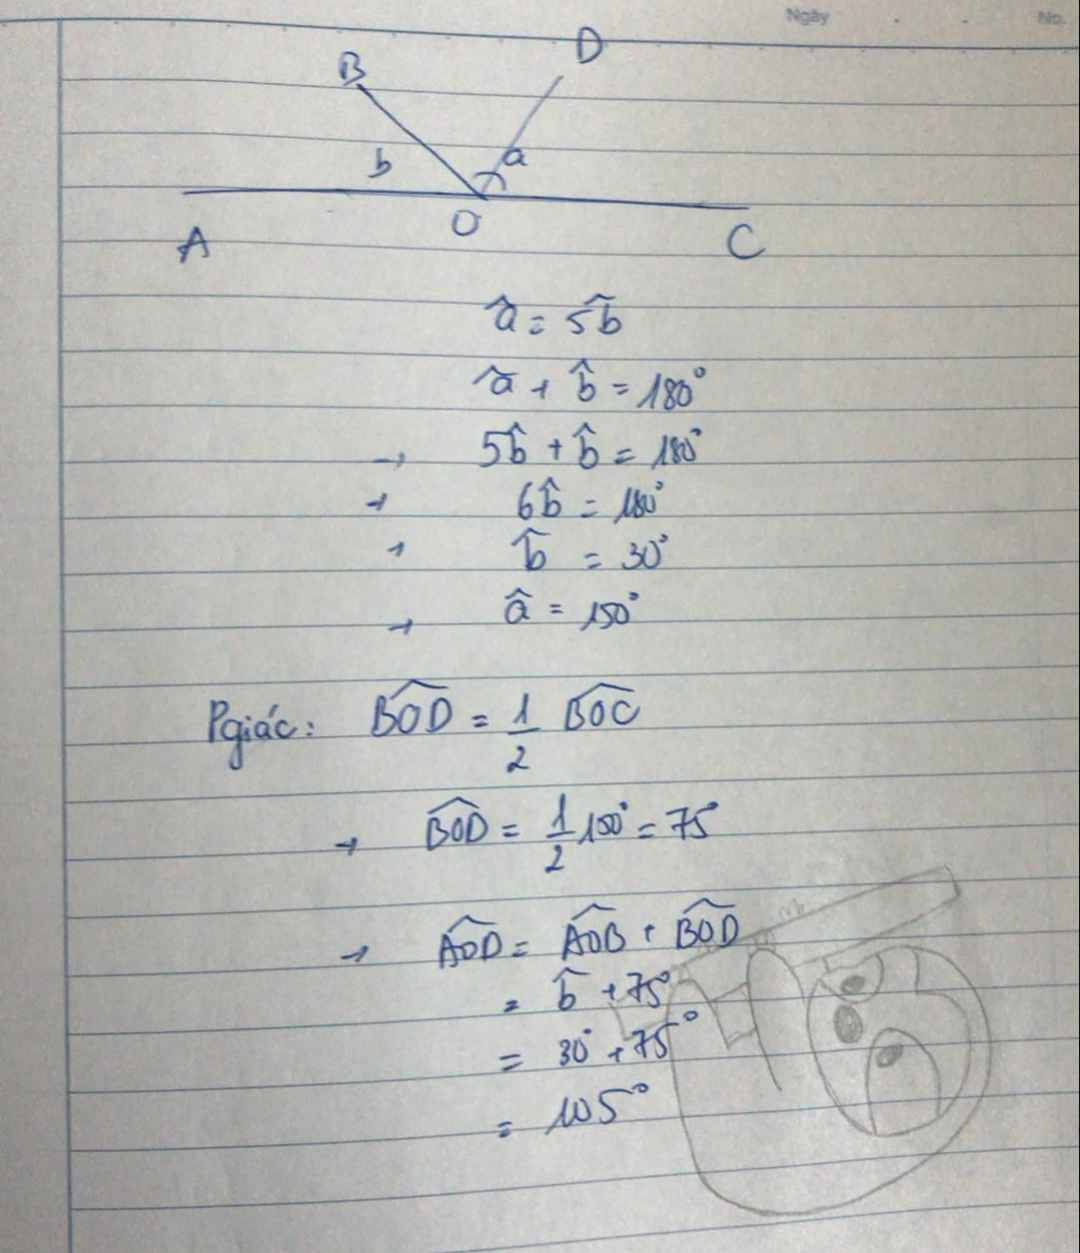 Ngày No.
B D
b a
O
A C
â = 5b̂
â + b̂ = 180°
→ 5b̂ + b̂ = 180°
→ 6b̂ = 180°
→ b̂ = 30°
→ â = 150°
Pgiác: BOD = 1/2 BOC
→ BOD = 1/2 150° = 75°
→ AOD = AOB + BOD
= b̂ + 75°
= 30° + 75°
= 105°